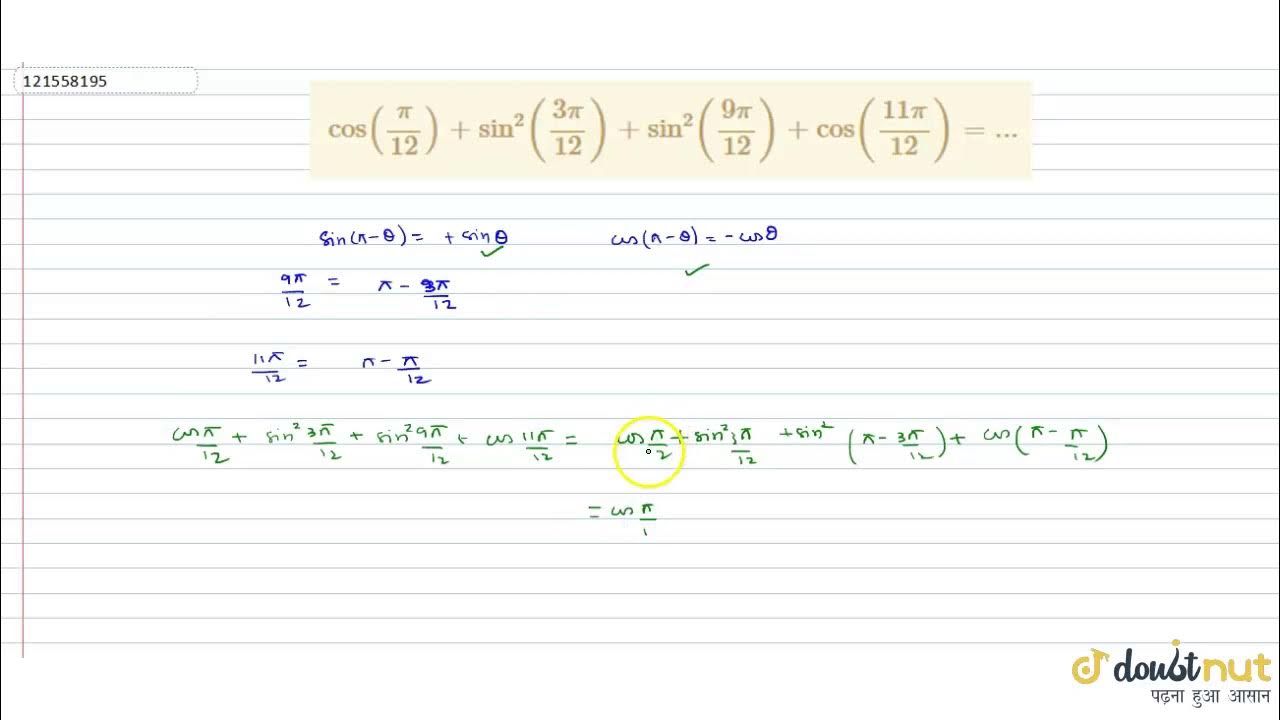 121558195
cos(π/12) + sin²(3π/12) + sin²(9π/12) + cos(11π/12) = ...
sin(π-θ) = + sinθ cos(π-θ) = -cosθ
9π/12 = π - 3π/12
11π/12 = π - π/12
cos π/12 + sin² 3π/12 + sin² 9π/12 + cos 11π/12 = cos π/12 + sin² 3π/12 + sin² (π - 3π/12) + cos(π - π/12)
= cos π/1
doubtnut
पढ़ना हुआ आसान